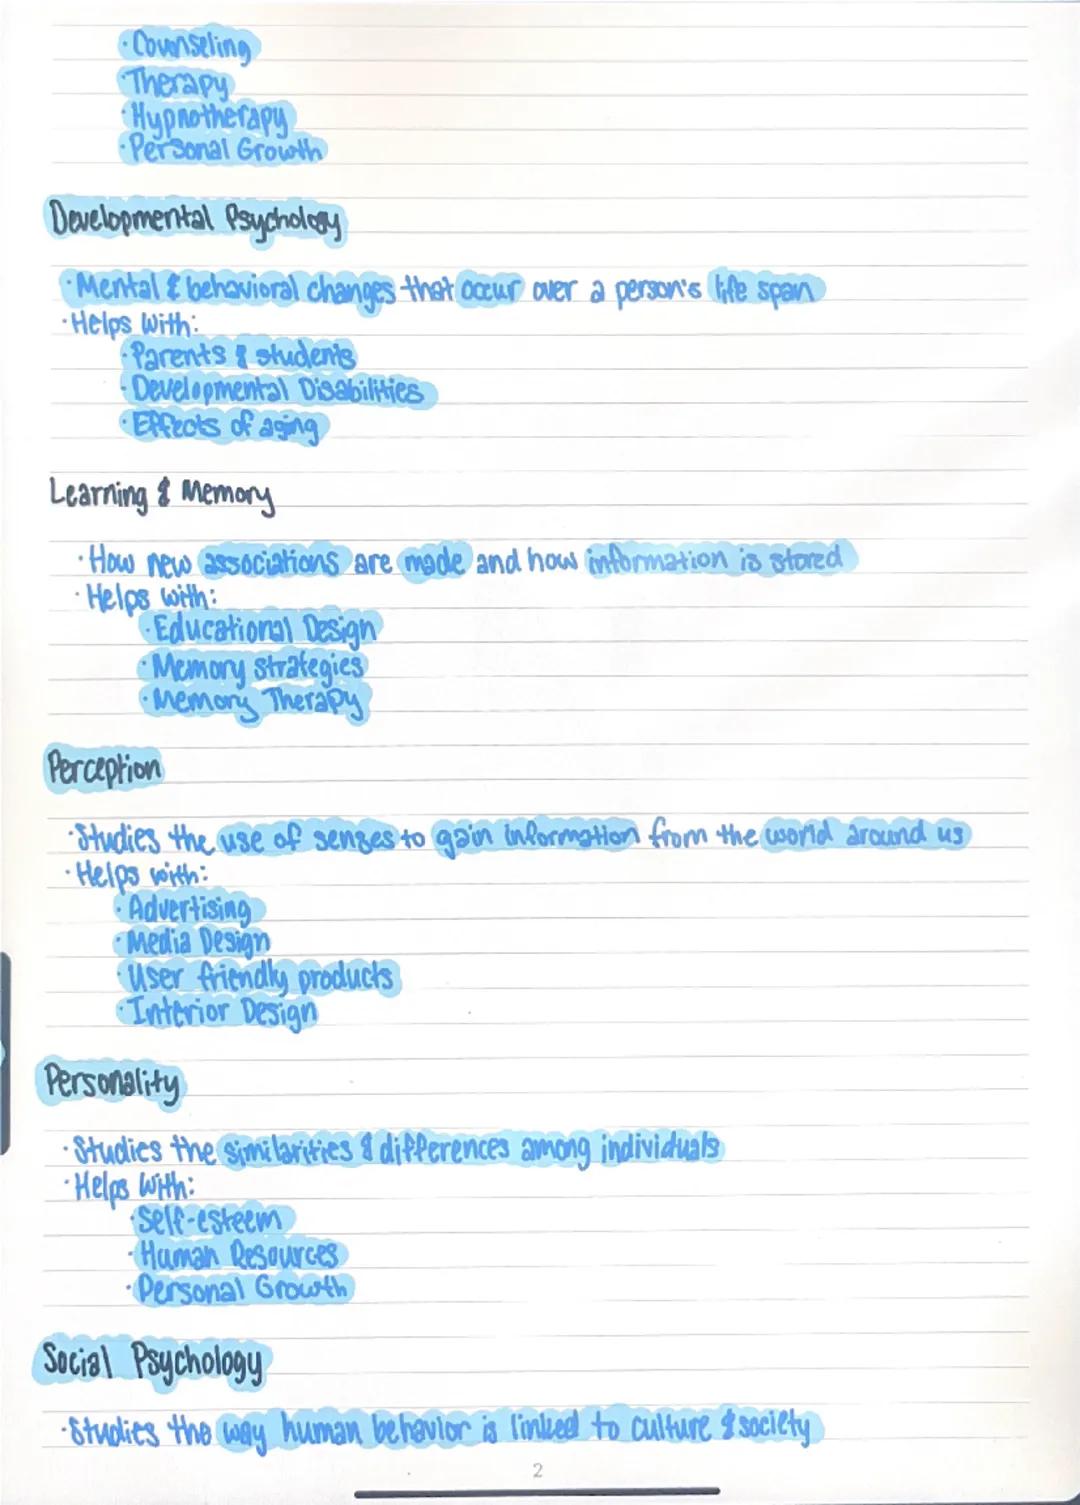 · Counseling
· Therapy
· Hypnotherapy
· Personal Growth
Developmental Psychology
· Mental & behavioral changes that occur over a person's life span
· Helps with:
· Parents & students
· Developmental Disabilities
· Effects of aging
Learning & Memory
· How new associations are made and how information is stored
· Helps with:
· Educational Design
· Memory strategies
· Memory Therapy
Perception
· Studies the use of senses to gain information from the world around us
· Helps with:
· Advertising
· Media Design
· User friendly products
· Interior Design
Personality
· Studies the similarities & differences among individuals
· Helps with:
· Self-esteem
· Human Resources
· Personal Growth
Social Psychology
· Studies the way human behavior is linked to culture & society
2